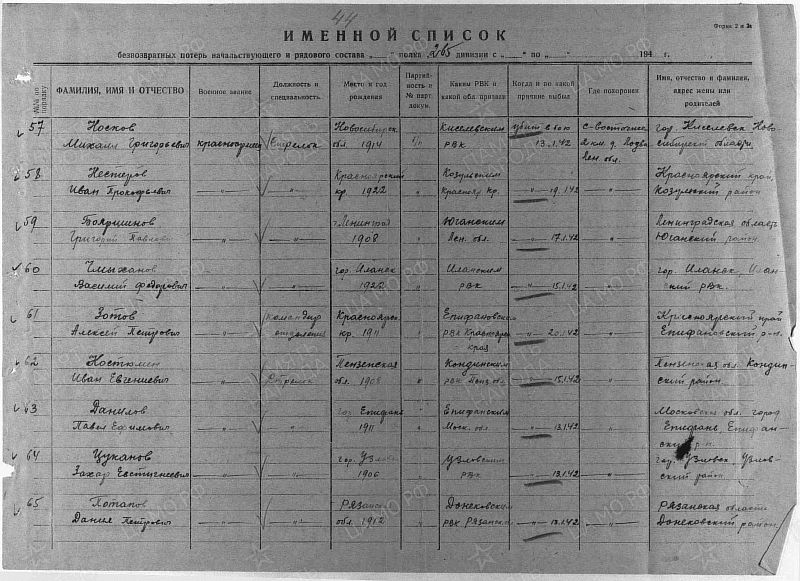 44
Форма 2 и 2а
ИМЕННОЙ СПИСОК
безвозвратных потерь начальствующего и рядового состава „ “ полка 265 дивизии с „ “ по „ “ 194 г.
№№ по порядку
ФАМИЛИЯ, ИМЯ И ОТЧЕСТВО
Военное звание
Должность и специальность.
Место и год рождения
Партийность и № парт. докум.
Каким РВК и какой обл. призван
Когда и по какой причине выбыл
Где похоронен
Имя, отчество и фамилия, адрес жены или родителей
57 Носков Новосибирск. Киселевским убит в бою С-восточнее гор. Киселевск Ново-
Михаил Григорьевич красноармеец Стрелок обл. 1914 б/п РВК 13.1.42 сибирской области
Лен. обл.
58 Нестеров Красноярский Козульским Красноярский край,
Иван Прокофьевич —„— —„— кр. 1922 „ Краснояр. кр. —„— 19.1.42 —„— Козульский район
59 Бояршинов г. Ленинград Юганским Ленинградская область
Григорий Павлович —„— —„— 1908 „ Лен. обл. —„— 17.1.42 —„— Юганский район
60 Чмыханов гор. Иланск Иланским гор. Иланск, Илан-
Василий Федорович —„— —„— 1922 „ РВК —„— 15.1.42 —„— кий РВК.
61 Зотов командир Красноярск. Епифановск. Красноярский край
Алексей Петрович —„— отделения кр. 1911 „ РВК Красноярск. —„— 20.1.42 —„— Епифановский р-н.
края
62 Костюмен Пензенская Кондинским Пензенская обл. Кондин-
Иван Евгениевич —„— Стрелок обл. 1908 „ РВК Пенз. обл. —„— 15.1.42 —„— ский район.
63 Данилов гор. Епифань Епифанским Московская обл. город
Павел Ефимович —„— —„— 1911 „ Моск. обл. —„— 13.1.42 —„— Епифань, Епифан-
ский р-н.
64 Цуканов гор. Узлов. Узловским гор. Узловск, Узлов-
Захар Евстигнеевич —„— —„— 1906 „ РВК —„— 13.1.42 —„— ский район
65 Потапов Рязанск. Донековским Рязанская область
Данил Петрович —„— —„— обл. 1912 „ РВК Рязанск. —„— 13.1.42 —„— Донековский район.